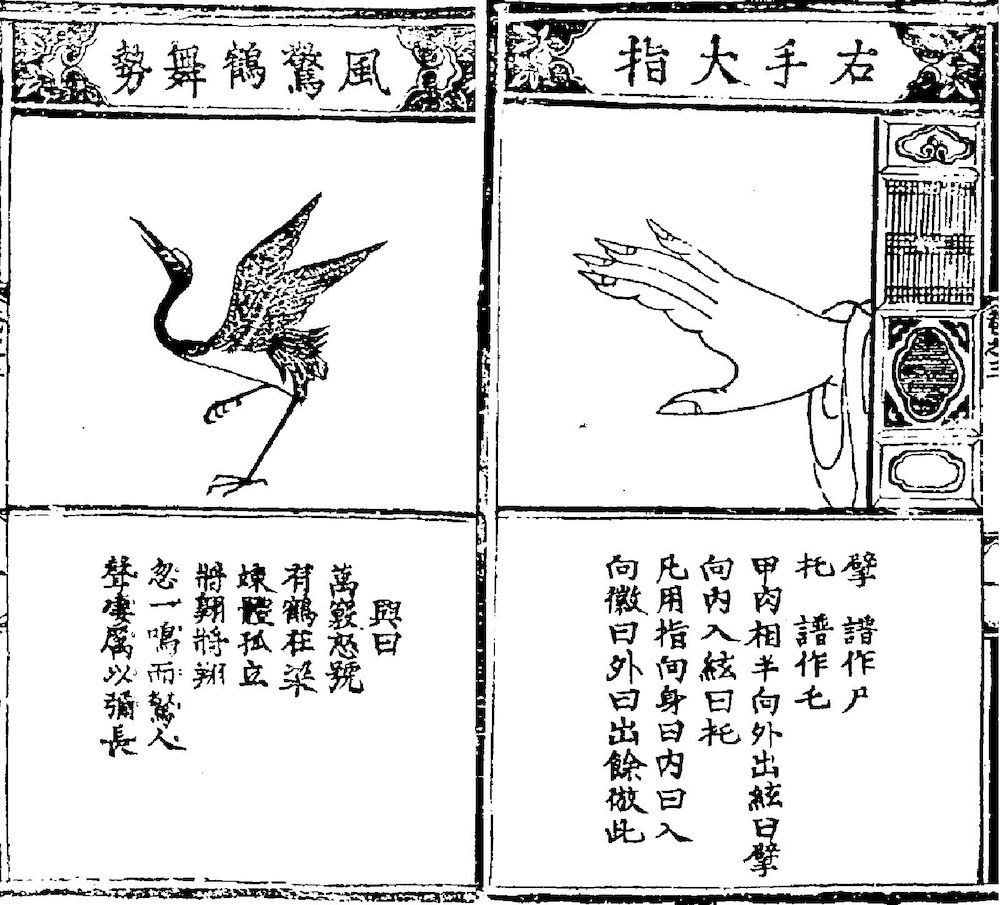 右手大指
擘　譜作尸
托　譜作乇
甲肉相半向外出絃曰擘
向內入絃曰托
凡用指向身曰內曰入
向徽曰外曰出餘倣此
風驚鶴舞勢
興曰
萬竅怒號
有鶴在梁
竦體孤立
將翺將翔
忽一鳴而驚人
聲凄厲以彌長